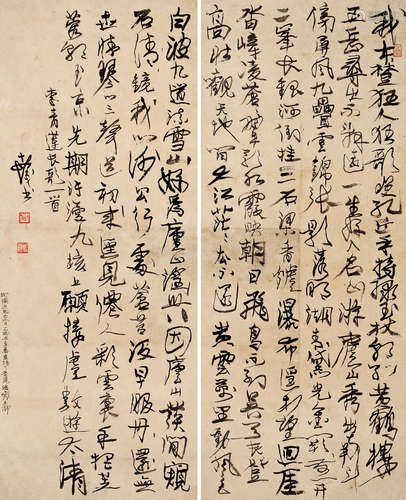 我本楚狂人狂歌笑孔丘手持綠玉杖朝別黃鶴樓
五岳尋山不辭遠一生好入名山遊廬山秀出南斗
傍屏風九疊雲錦張影落明湖青黛光金闕前開
二峯長銀河倒挂三石梁香鑪瀑布遙相望迴崖
沓嶂凌蒼蒼翠影紅霞映朝日飛鳥不到吳天長登
高壯觀天地間大江茫茫去不還黃雲萬里動風色
白波九道流雪山好為廬山謠興因廬山發閒窺
石清鏡我心謝公行處蒼苔沒早服丹還無
世情琴心三疊道初成遙見僊人彩雲裏手把芙
蓉朝玉京先期汗漫九垓上願接盧敖遊太清
書青蓮長歌一首